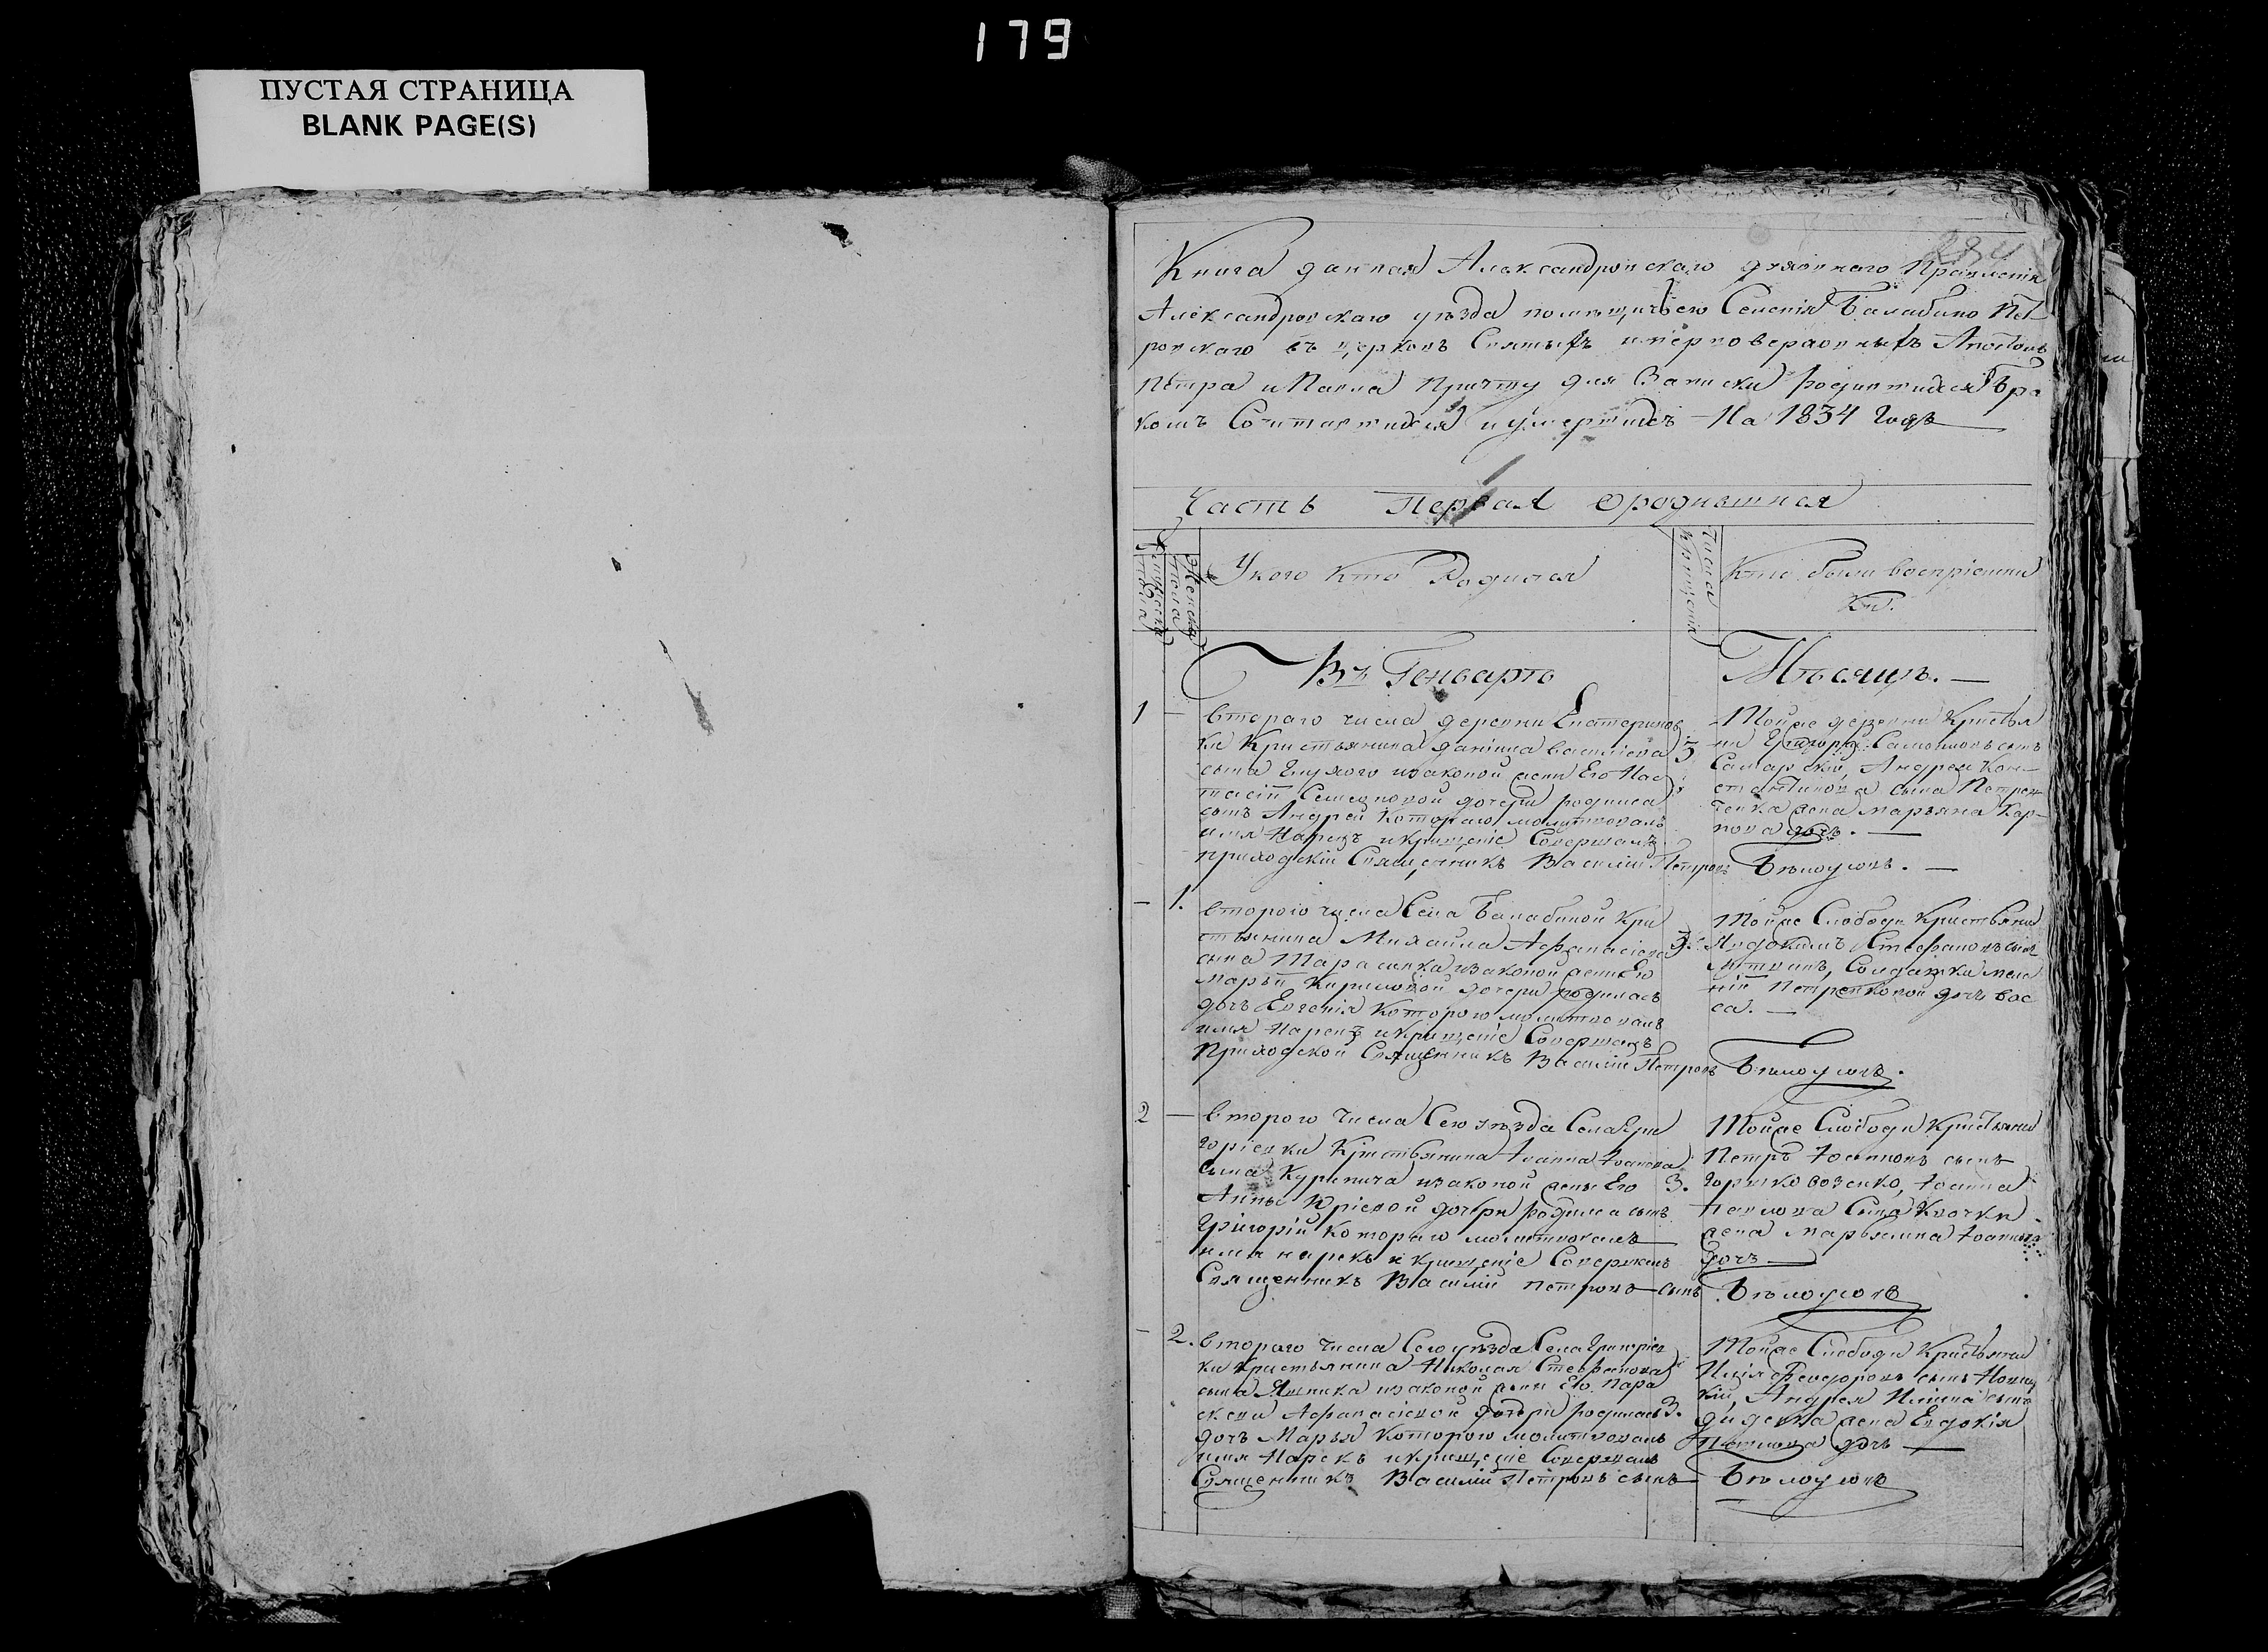 179
ПУСТАЯ СТРАНИЦА
BLANK PAGE(S)
Книга данная Александровскаго духовнаго Правленія
Александровскаго уѣзда помѣщичьею Селенія Балабино Пет
ровскаго въ церковь Святыхъ и первоверховныхъ Апостолъ
Петра и Павла Причту для Записки Родившихся Бра
комъ Сочитавшихся и умершихъ На 1834 Годъ
Часть Первая о родившихся
Мужеска пола
Женска пола
У кого кто Родился
Числа крещенія
Кто были воспріемни
ки.
Въ Генварѣ
Мѣсяцѣ.
1 — втораго числа деревни Екатеринов
ки Кристьянина Даніила василіева
сына Глухого изаконой жены Его Нас
тасіи Семеновой дочери родился
сынъ Андрей Котораго молитвовалъ
имя Нарекъ икрещеніе Совершалъ
приходскій Священникъ Василій Петровъ
3
Тойже деревни Кристья
нинъ Григорій Самойловъ сынъ
Самарскій, Андрея Кон-
стантинова сына Петрен-
ченка жена марьяна Кар-
пова дочь.
Бѣлоусовъ.
— 1. второго числа Села Балабиной Кри
стьянина Михайла Афанасіева
сына Тарасенка изаконой жены Его
Марьи Кириловой дочери родилась
дочь Евгенія Которою молитвовалъ
имя Нарекъ икрещеніе Совершалъ
Приходской Священникъ Василій Петровъ
3.
Тойже Слободы Кристьянин
Авдокимъ Стефановъ сынъ
Литвинъ, Солдатки мела
ніи Петренковой дочь вас
са.
Бѣлоусовъ.
2 — второго числа Сего уѣзда Села Гри
горіевки Кристьянина Іоанна Іоанова
сына Куринича изаконой жены Его
Анны Юріевой дочри родился сынъ
Григорій Котораго молитвовалъ
имя нарекъ и крещеніе Совершалъ
Священникъ Василій петровъ сынъ
3.
Тойже Слободы Кристьянин
Петръ Іоанновъ сынъ
Іоанна
Павлова Сына Клочки
жена марьянна Іоаннова
дочь
Бѣлоусовъ
— 2. второго числа Сего уѣзда Села Григоріев
ки Кристьянина Николая Стефанова
сына Яшника изаконой жены Его Пара
скеви Афанасіевой дочери родилась
дочь Марья Которою молитвовалъ
имя Нарекъ икрещеніе Совершалъ
Священникъ Василій Петровъ сынъ
3.
Тойже Слободы Кристьянин
Илія Феодоровъ сынъ Новиц
кій, Андрея Иліина сына
Диденка жена Евдокія
Павлова дочь
Бѣлоусовъ